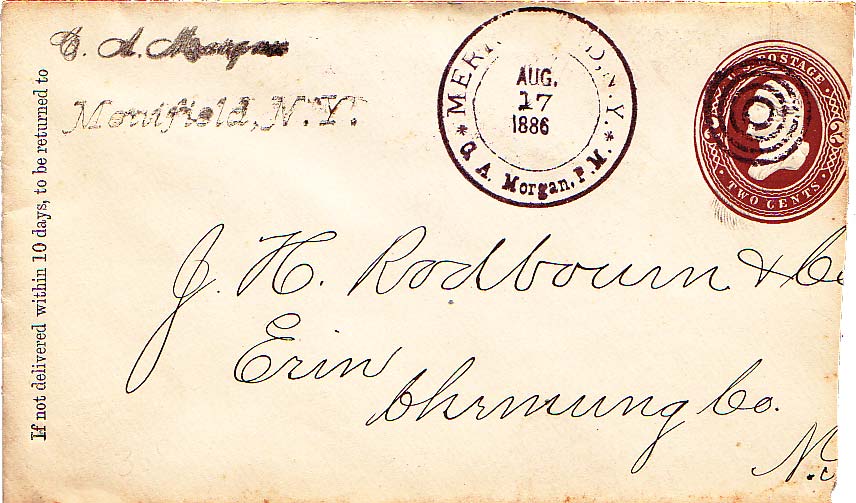 C. A. Morgan
Merrifield, N.Y.
If not delivered within 10 days, to be returned to
MERRIFIELD, N.Y.
AUG.
17
1886
C. A. Morgan, P.M.
U.S. POSTAGE
TWO CENTS
2 2
J. H. Rodbourn & Co
Erin
Chemung Co.
N.